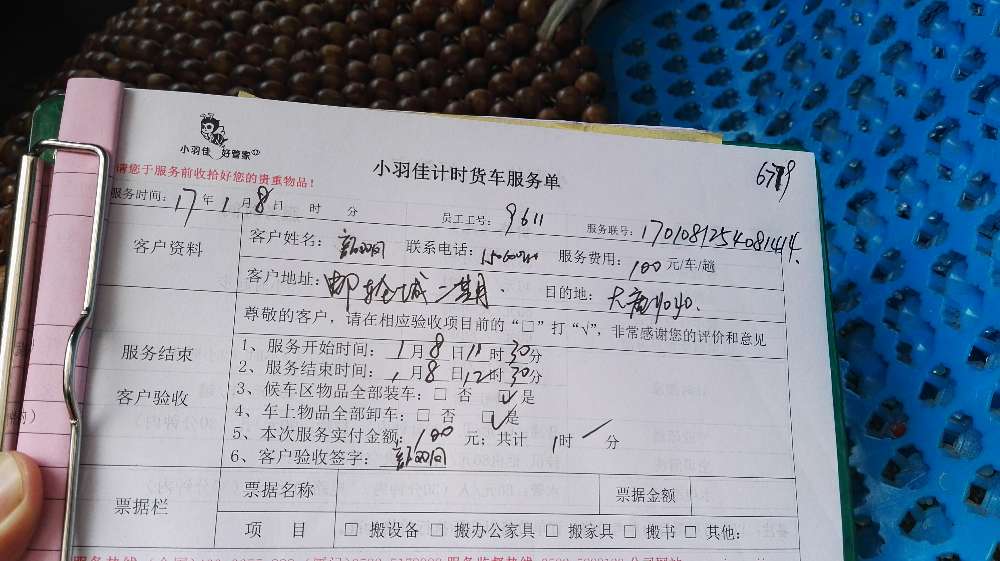 小羽佳 好管家
小羽佳计时货车服务单
6719
请您于服务前收拾好您的贵重物品！
服务时间：17年1月8日 时 分 员工工号：9611 服务联号：1701081254081414
客户资料
客户姓名： 联系电话： 服务费用：100元/车/趟
客户地址：邮轮城二期、 目的地：
尊敬的客户，请在相应验收项目前的“□”打“√”，非常感谢您的评价和意见
服务结束
客户验收
1、服务开始时间：1月8日11时30分
2、服务结束时间：1月8日12时30分
3、候车区物品全部装车：□ 否 ☑ 是
4、车上物品全部卸车：□ 否 ☑ 是
5、本次服务实付金额：100元；共计 1时 / 分
6、客户验收签字：
票据栏
票据名称 票据金额
项 目 □ 搬设备 □ 搬办公家具 □ 搬家具 □ 搬书 □ 其他：